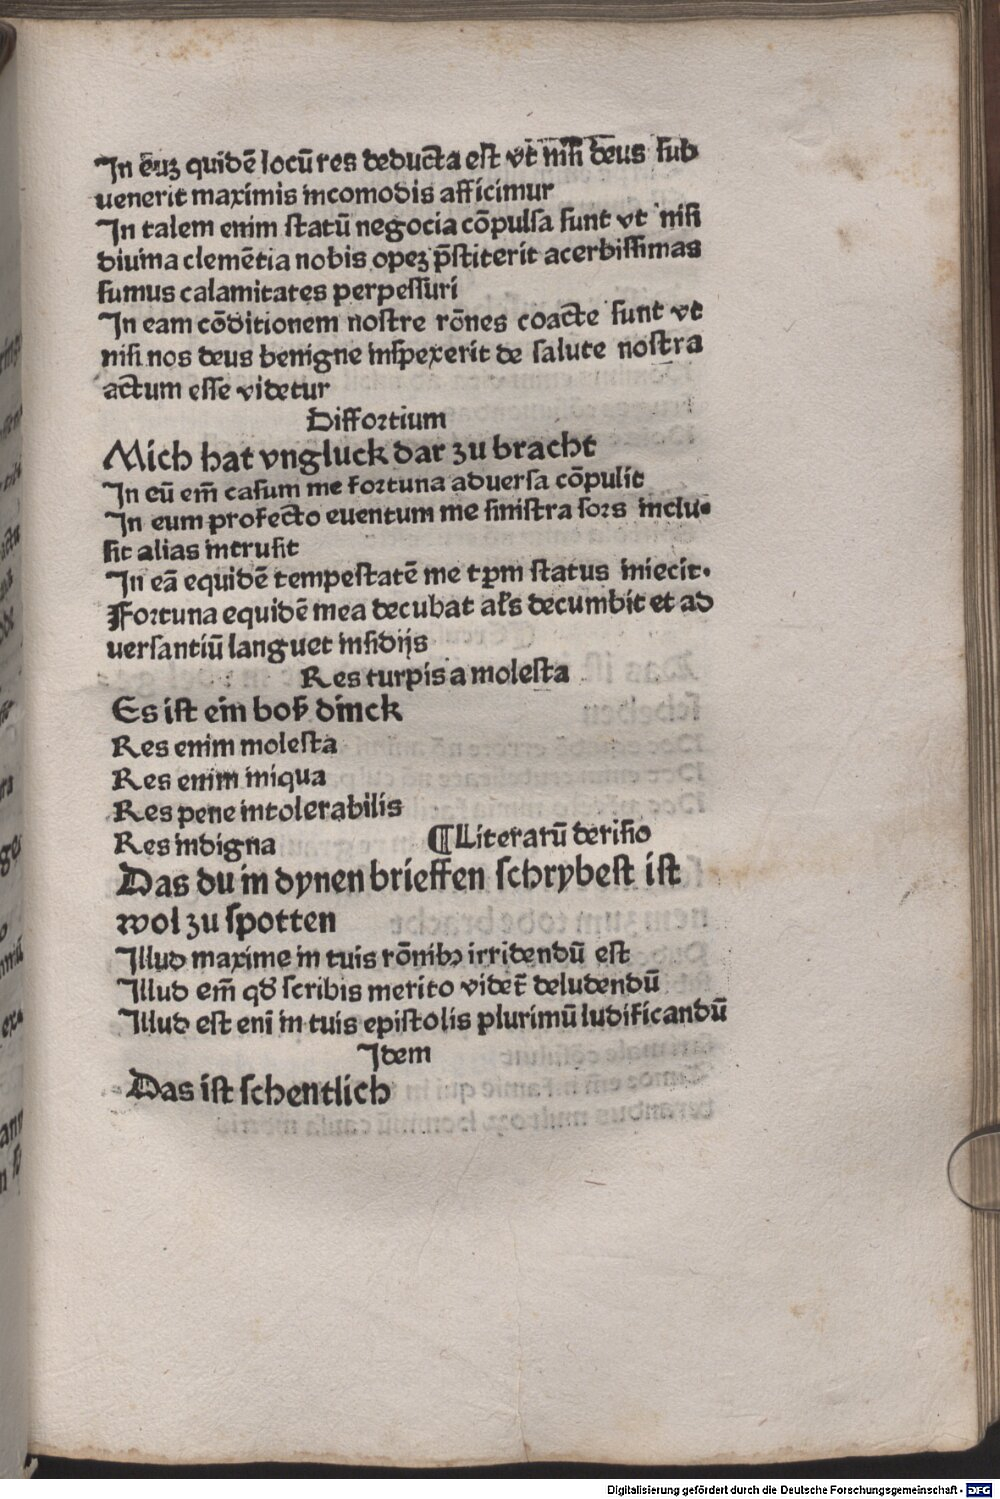 In euꝫ quidē locū res deducta est vt nisi deus sub
uenerit maximis incomodis afficimur
In talem enim statū negocia cōpulsa sunt vt nisi
diuina clemētia nobis opeꝫ p̄stiterit acerbissimas
sumus calamitates perpessuri
In eam cōditionem nostre rōnes coacte sunt vt
nisi nos deus benigne inspexerit de salute nostra
actum esse videtur
Diffortium
Mich hat vngluck dar zu bracht
In eū em̄ casum me fortuna aduersa cōpulit
In eum profecto euentum me sinistra sors inclu⸗
sit alias intrusit
In eā equidē tempestatē me tꝑm status iniecit.
Fortuna equidē mea decubat al's decumbit et ad
uersantiū languet insidijs
Res turpis a molesta
Es ist ein boß dinck
Res enim molesta
Res enim iniqua
Res pene intolerabilis
Res indigna ¶Literarū derisio
Das du in dynen brieffen schrybest ist
wol zu spotten
Illud maxime in tuis rōnibꝰ irridendū est
Illud em̄ qđ scribis merito videt̄ deludendū
Illud est eni in tuis epistolis plurimū ludificandū
Idem
Das ist schentlich
Digitalisierung gefördert durch die Deutsche Forschungsgemeinschaft - DFG